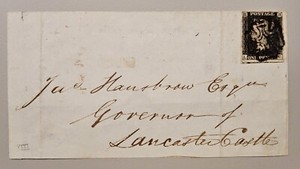 POSTAGE
Jas. Hansbrow Esqr
Governor of
Lancaster Castle